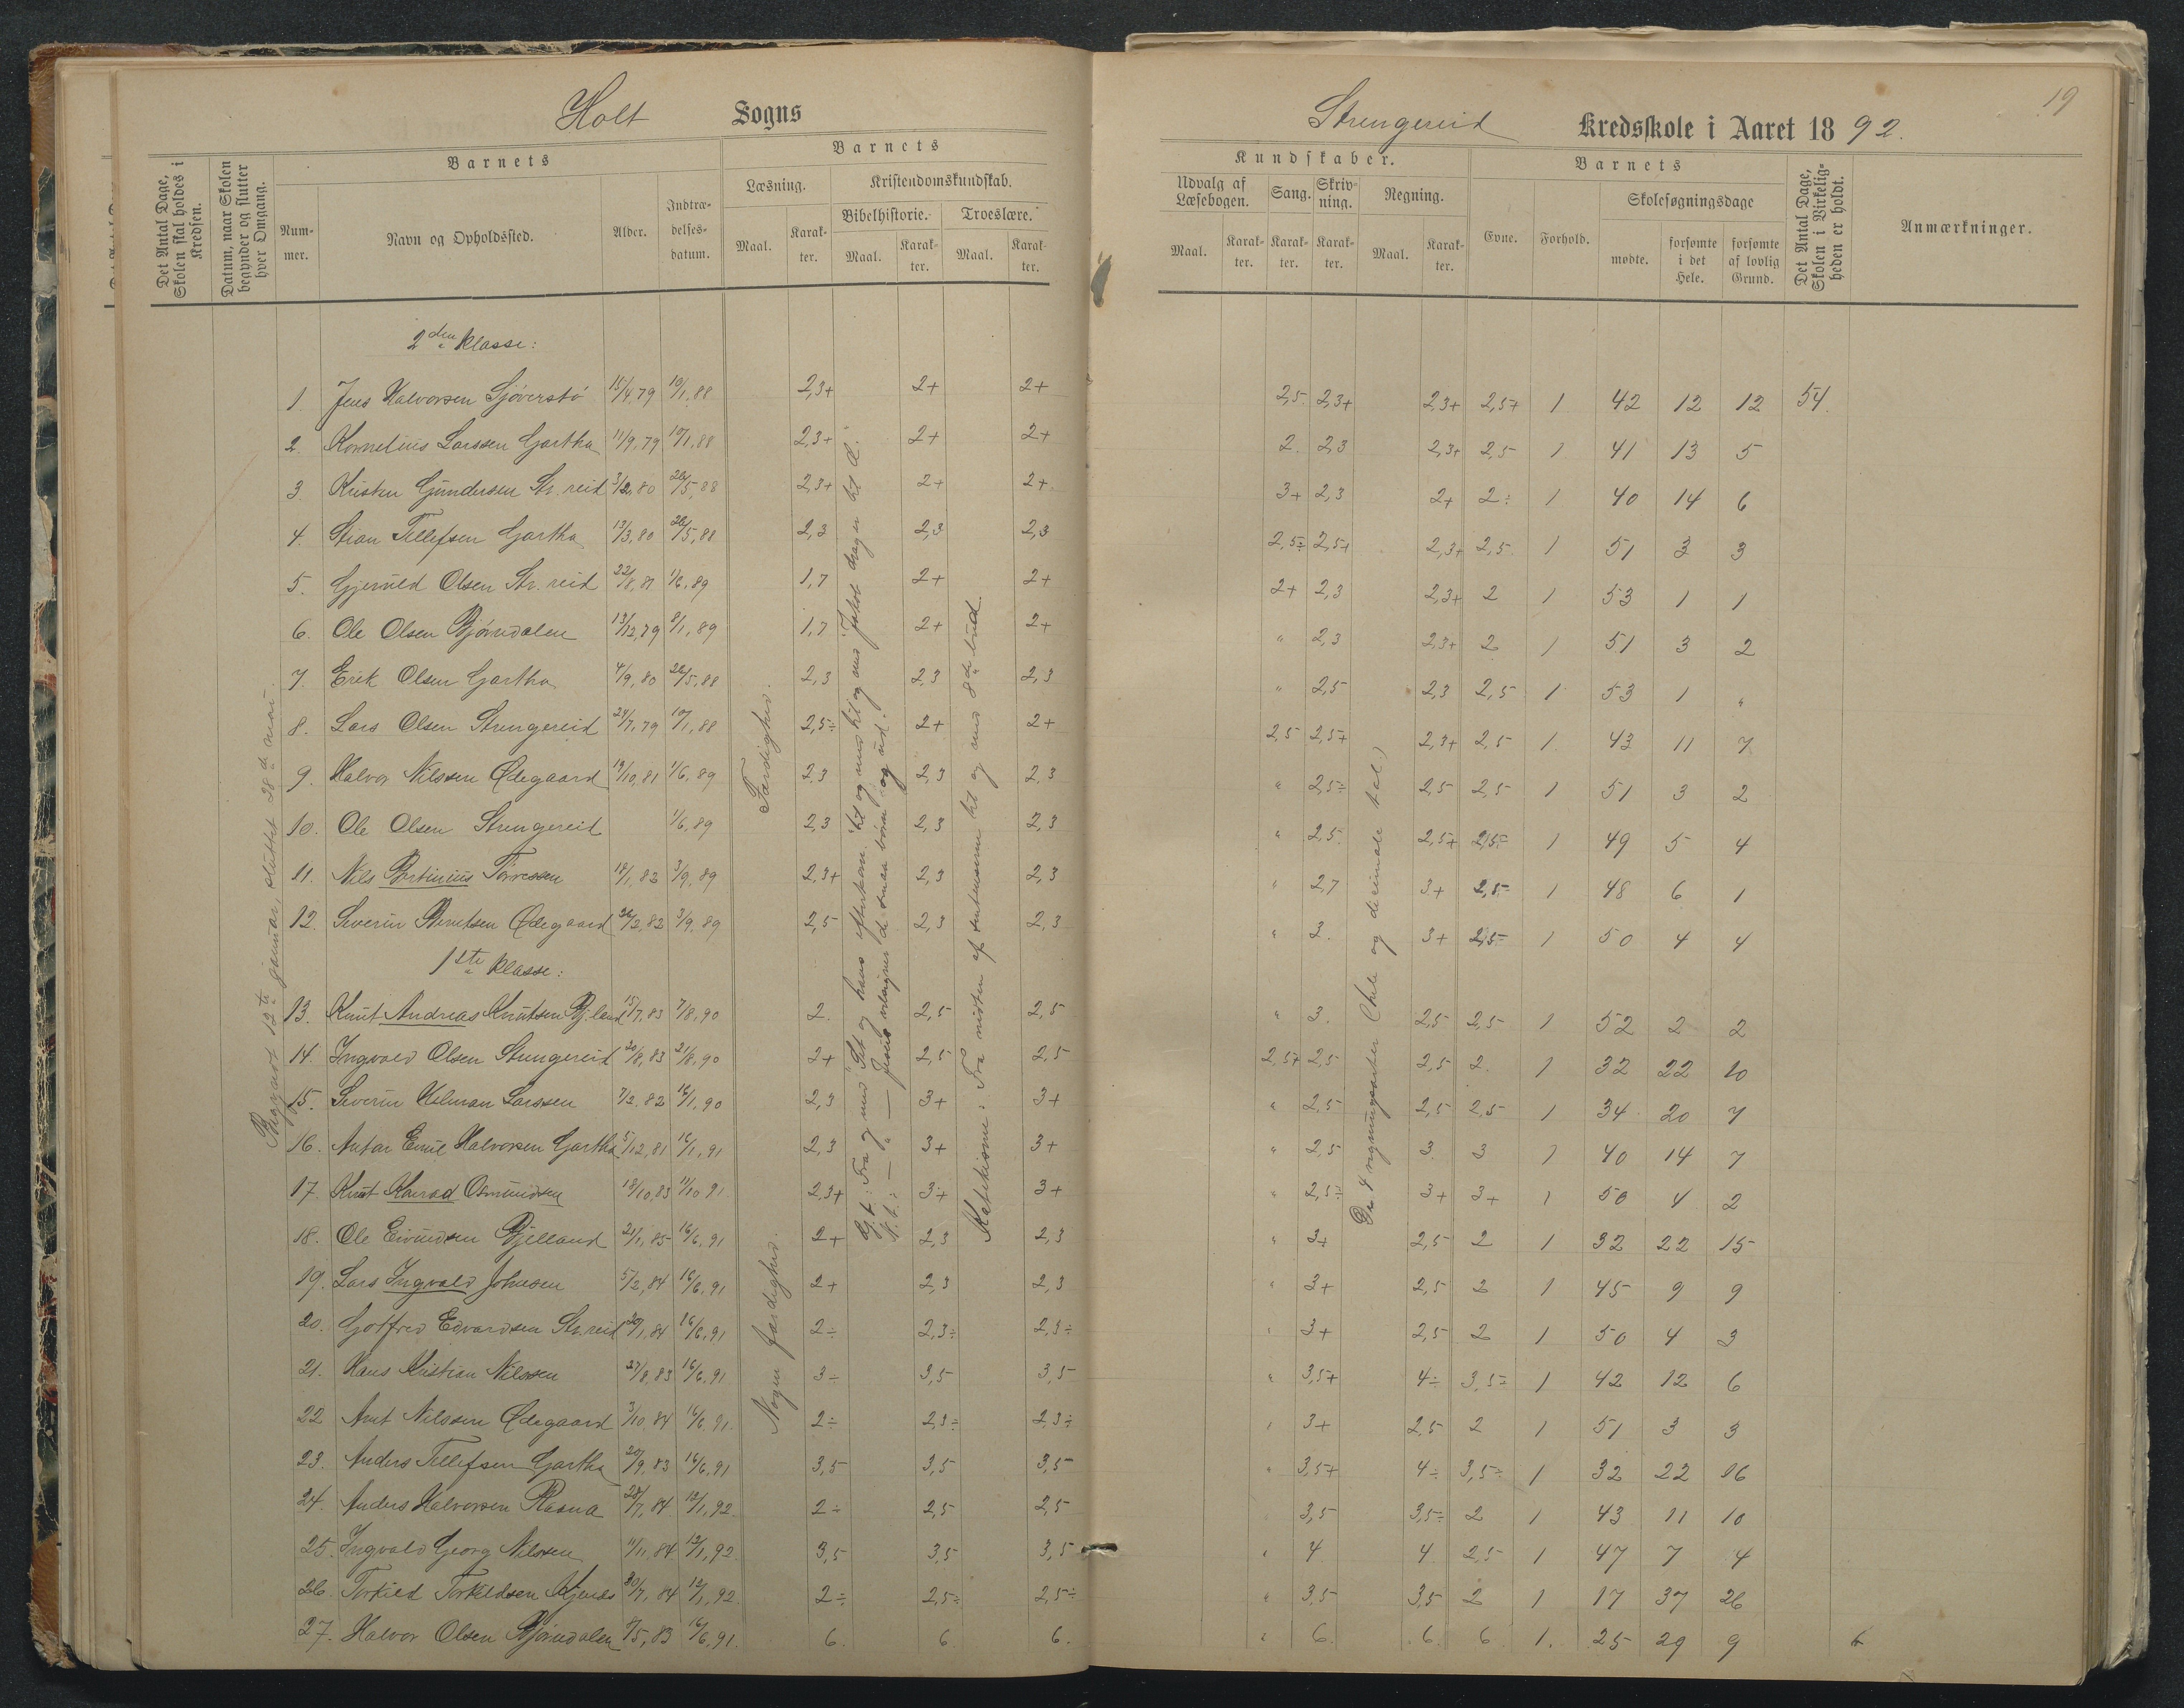 Holt Sogns
Strengereid Kredsskole i Aaret 1892.
19
Det Antal Dage, Skolen skal holdes i Kredsen.
Datum, naar Skolen begynder og slutter hver Omgang.
Barnets
Nummer.
Navn og Opholdssted.
Alder.
Indtrædelsesdatum.
Barnets
Læsning.
Maal.
Karakter.
Kristendomskundskab.
Bibelhistorie.
Maal.
Karakter.
Troeslære.
Maal.
Karakter.
Kundskaber.
Udvalg af Læsebogen.
Maal.
Karakter.
Sang.
Karakter.
Skrivning.
Karakter.
Regning.
Maal.
Karakter.
Barnets
Evne.
Forhold.
Skolesøgningsdage
mødte.
forsømte i det Hele.
forsømte af lovlig Grund.
Det Antal Dage, Skolen i Virkeligheden er holdt.
Anmærkninger.
Begyndt 12te januar, sluttet 28de mai.
Færdighed.
Nogen færdighed.
G.t.: Fra og med "Set og hans efterkom." til og med til og med "Jakob drager til Æ."
N.t.: — " — Jesus velsigner de smaa børn og ud.
Katekisme: Fra midten af til og med 8de bud.
De 4 regningsarter (hele og decimale tal)
2den klasse:
1. Jens Halvorsen Sjøverstø 15/4,79 10/1,88 2,3+ 2+ 2+ 2,5 2,3+ 2,3+ 2,5+ 1 42 12 12 54
2. Kornelius Larssen Gartha 11/9,79 10/1,88 2,3+ 2+ 2+ 2. 2,3 2,3+ 2,5 1 41 13 5
3. Kristen Gundersen Str.reid 3/2,80 28/5,88 2,3+ 2+ 2+ 3+ 2,3 2+ 2÷ 1 40 14 6
4. Stian Tellefsen Gartha 13/3,80 28/5,88 2,3 2,3 2,3 2,5÷ 2,5+ 2,3+ 2,5 1 51 3 3
5. Gjeruld Olsen Str.reid 22/8,81 1/6,89 1,7 2+ 2+ 2+ 2,3 2,3+ 2 1 53 1 1
6. Ole Olsen Bjørndalen 13/12,79 8/1,89 1,7 2+ 2+ " 2,3 2,3+ 2 1 51 3 2
7. Erik Olsen Gartha 4/9,80 28/5,88 2,3 2,3 2,3 " 2,5 2,3 2,5 1 53 1 "
8. Lars Olsen Strengereid 24/7,79 10/1,88 2,5÷ 2+ 2+ 2,5 2,5+ 2,3+ 2,5 1 43 11 7
9. Halvor Nilssen Ødegaard 19/10,81 1/6,89 2,3 2,3 2,3 " 2,5÷ 2,5 2,5 1 51 3 2
10. Ole Olsen Strengereid 1/6,89 2,3 2,3 2,3 " 2,5 2,5+ 2,5÷ 1 49 5 4
11. Nils Bertinius Tørressen 18/1,82 3/9,89 2,3+ 2,3 2,3 " 2,7 3+ 2,5÷ 1 48 6 1
12. Severin Berntsen Ødegaard 26/2,82 3/9,89 2,5 2,3 2,3 " 3. 3+ 2,5÷ 1 50 4 4
1ste klasse:
13. Knut Andreas Knutsen Bj.land 15/7,83 7/8,90 2. 2,5 2,5 " 3. 2,5 2,5 1 52 2 2
14. Ingvald Olsen Strengereid 20/8,83 21/8,90 2+ 2,5 2,5 2,5+ 2,5 2,5 2. 1 32 22 10
15. Severin Hilman Larssen 7/2,82 16/1,90 2,3 3+ 3+ " 2,5 2,5 2,5 1 34 20 7
16. Antan Emil Halvorsen Gartha 5/12,81 16/1,91 2,3 3+ 3+ " 2,5 3 3 1 40 14 7
17. Knut Konrad Osmundsen 18/10,83 11/10,91 2,3+ 3+ 3+ " 2,5÷ 3+ 3+ 1 50 4 2
18. Ole Eivindsen Bjelland 21/1,85 16/6,91 2+ 2,3 2,3 " 3+ 2,5 2 1 32 22 15
19. Lars Ingvald Johnsen 5/2,84 16/6,91 2+ 2,3 2,3 " 3+ 2,5 2 1 45 9 9
20. Gotfred Edvardsen Str.reid 20/1,84 16/6,91 2÷ 2,3÷ 2,3÷ " 3+ 2,5 2 1 50 4 3
21. Hans Kristian Nilssen 27/8,83 16/6,91 3÷ 3,5 3,5 " 3,5+ 4÷ 3,5÷ 1 42 12 6
22 Arnt Nilssen Ødegaard 3/10,84 16/6,91. 2÷ 2,3÷ 2,3÷ " 3+ 2,5 2 1 51 3 3
23. Anders Tellefsen Gartha 20/9,83 16/6,91 3,5 3,5 3,5 " 3,5+ 4÷ 3,5÷ 1 32 22 16
24. Anders Halvorsen Raana 28/7,84 12/1,92. 2÷ 2,5 2,5 3,5 3,5÷ 2 1 43 11 10
25. Ingvald Georg Nilssen 11/11,84 12/1,92. 3,5 3,5 3,5 " 4 4 2,5 1 47 7 4
26. Torkild Torkildsen 30/7,84 12/1,92. 2÷ 2,5÷ 2,5÷ " 3,5 3,5 2 1 17 37 26
27. Halvor Olsen Bjørndalen 8/5,83 16/6,91. 6. 6 6. " 6. 6 6 1. 25 29 9